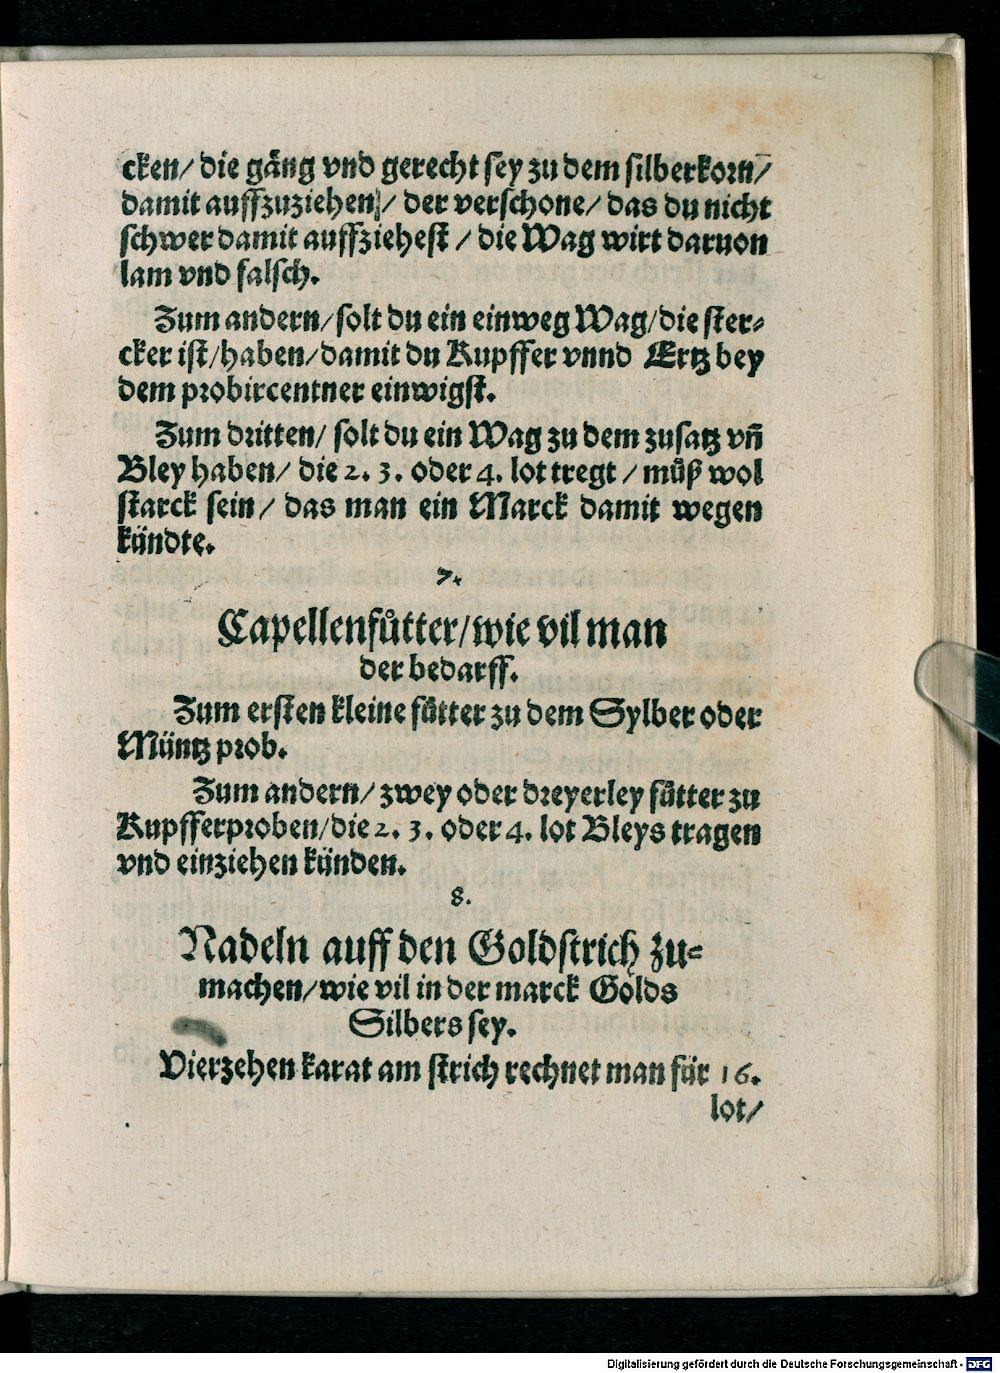 cken/ die gäng vnd gerecht sey zu dem silberkorn/
damit auffzuziehen/ der verschone/ das du nicht
schwer damit auffziehest / die Wag wirt daruon
lam vnd falsch.
Zum andern/ solt du ein einweg Wag/die ster⸗
cker ist/haben/damit du Kupffer vnnd Ertz bey
dem probircentner einwigst.
Zum dritten/ solt du ein Wag zu dem zusatz vn̄
Bley haben/ die 2. 3. oder 4. lot tregt / müß wol
starck sein/ das man ein Marck damit wegen
kündte.
7.
Capellenfůtter/wie vil man
der bedarff.
Zum ersten kleine fůtter zu dem Sylber oder
Müntz prob.
Zum andern/ zwey oder dreyerley fůtter zu
Kupfferproben/die 2. 3. oder 4. lot Bleys tragen
vnd einziehen künden.
8.
Nadeln auff den Goldstrich zu⸗
machen/wie vil in der marck Golds
Silbers sey.
Vierzehen karat am strich rechnet man für 16.
lot/
Digitalisierung gefördert durch die Deutsche Forschungsgemeinschaft - DFG